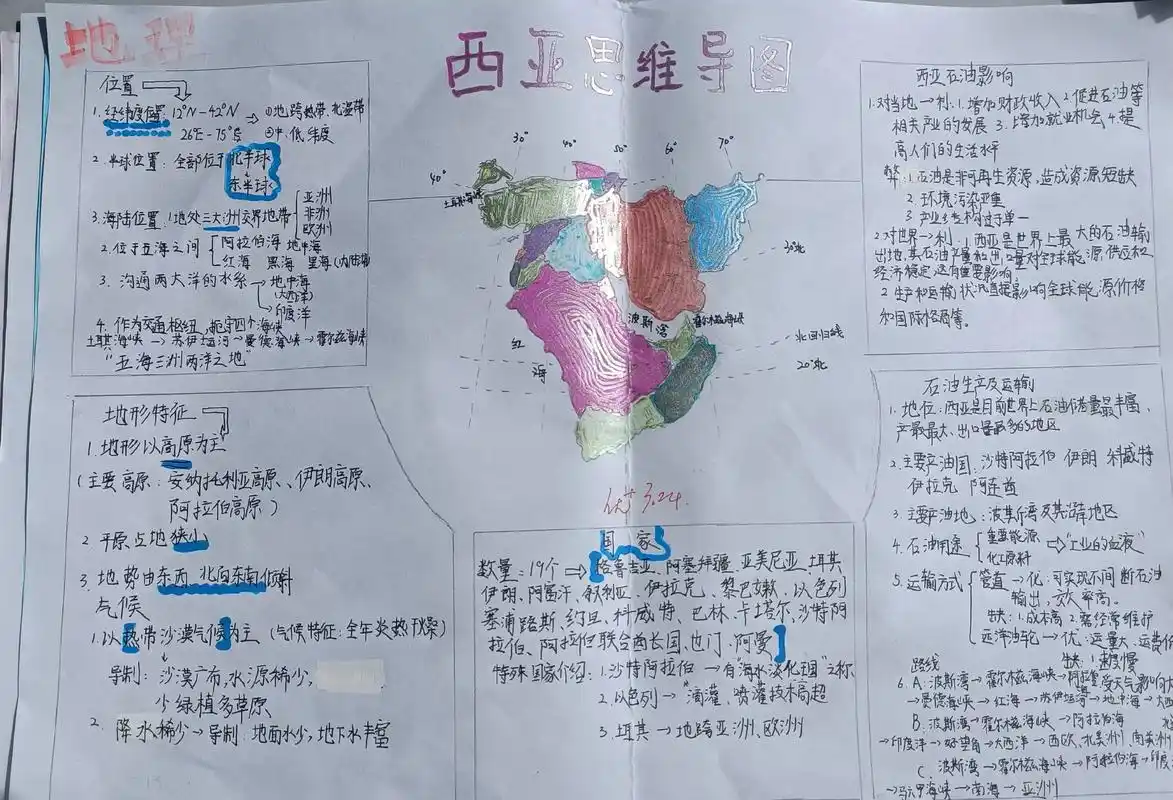 地理
西亚思维导图
位置
1. 经纬度位置: 12°N-42°N → ①地跨热带.北温带
26°E-75°E ②中.低纬度
2. 半球位置: 全部位于北半球
东半球
3. 海陆位置: 1.地处三大洲交界地带 亚洲
非洲
欧洲
2. 位于五海之间 阿拉伯海 地中海
红海 黑海 里海(内陆湖
3. 沟通两大洋的水系 → 地中海
(大西洋)
→ 印度洋
4. 作为交通枢纽, 扼守四个海峡
土耳其海峡 → 苏伊士运河 → 曼德海峡 → 霍尔木兹海峡
"五海三洲两洋之地"
地形特征
1. 地形以高原为主
(主要高原: 安纳托利亚高原、伊朗高原、
阿拉伯高原)
2 平原占地狭小
3. 地势由东西、北向东南倾斜
气候
1. 以热带沙漠气候为主 (气候特征: 全年炎热干燥)
导制: 沙漠广布, 水源稀少,
少绿植多草原
2. 降水稀少 → 导制: 地面水少, 地下水丰富
30° 40° 50° 60° 70°
40°
土耳其海峡
30°北
波斯湾 霍尔木兹海峡
红
海
北回归线
20°北
优 3.24.
国家
数量: 19个 → 格鲁吉亚、阿塞拜疆、亚美尼亚、土耳其
伊朗、阿富汗、叙利亚、伊拉克、黎巴嫩、以色列
塞浦路斯、约旦、科威特、巴林、卡塔尔、沙特阿
拉伯、阿拉伯联合酋长国、也门、阿曼
特殊国家介绍: 1. 沙特阿拉伯 → 有"海水淡化王国"之称
2. 以色列 → "滴灌、喷灌技术高超
3. 土耳其 → 地跨亚洲、欧洲
西亚石油影响
1.对当地 → 利: 1. 增加财政收入 2. 促进石油等
相关产业的发展 3. 增加就业机会 4. 提
高人们的生活水平
弊: 1. 石油是非可再生资源, 造成资源短缺
2. 环境污染严重
3. 产业结构过于单一
2.对世界 → 利: 1. 西亚是世界上最大的石油输
出地, 其石油产量和出口量对全球能源供应和
经济稳定, 这有重要影响
2. 生产和运输状况直接影响全球能源价格
和国际格局等。
石油生产及运输
1. 地位: 西亚是目前世界上石油储量最丰富、
产最最大、出口量最多的地区
2. 主要产油国: 沙特阿拉伯 伊朗 科威特
伊拉克 阿联酋
3. 主要产油地: 波斯湾及其沿岸地区
4. 石油用途 重要能源
化工原料 → "工业的血液"
5. 运输方式 管道 → 优: 可实现不间断石油
输出, 效率高。
缺: 1. 成本高 2. 需经常维护
远洋油轮 → 优: 运量大、运费低
缺: 1. 速度慢
路线
6. A: 波斯湾 → 霍尔木兹海峡 → 阿拉伯海 受天气影响大
→ 曼德海峡 → 红海 → 苏伊士运河 → 地中海 → 大西
B. 波斯湾 → 霍尔木兹海峡 → 阿拉伯海
→ 印度洋 → 好望角 → 大西洋 → 西欧、北美洲、南美洲
C. 波斯湾 → 霍尔木兹海峡 → 阿拉伯海 → 印度
→ 马六甲海峡 → 南海 → 亚洲